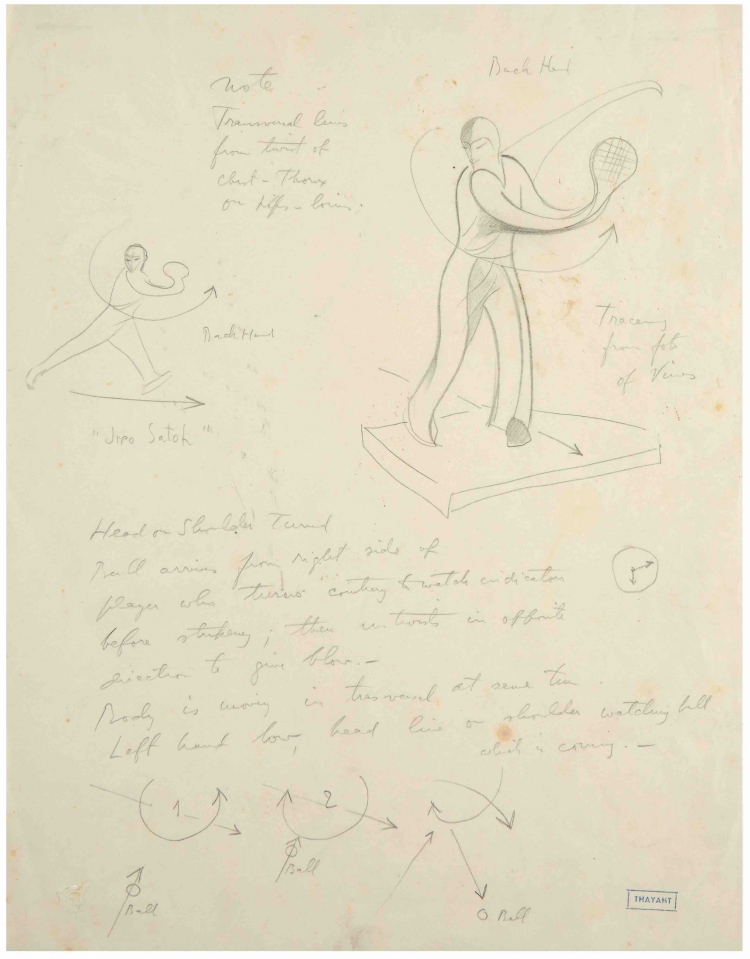 note
Transversal lines
from twist of
chest - Thorax
on hips - loins.
Back Hand
Back Hand
"Jiro Satoh"
Tracing
from foto
of Vines
Head on Shoulder Turned
Ball arrives from right side of
player who "turns" contrary to watch indicators
before striking; then untwists in opposite
direction to give blow. -
Body is moving in trasversal at same time.
Left hand low, head line on shoulder watching ball
which is coming. -
1
2
Ball
Ball
Ball
THAYAHT